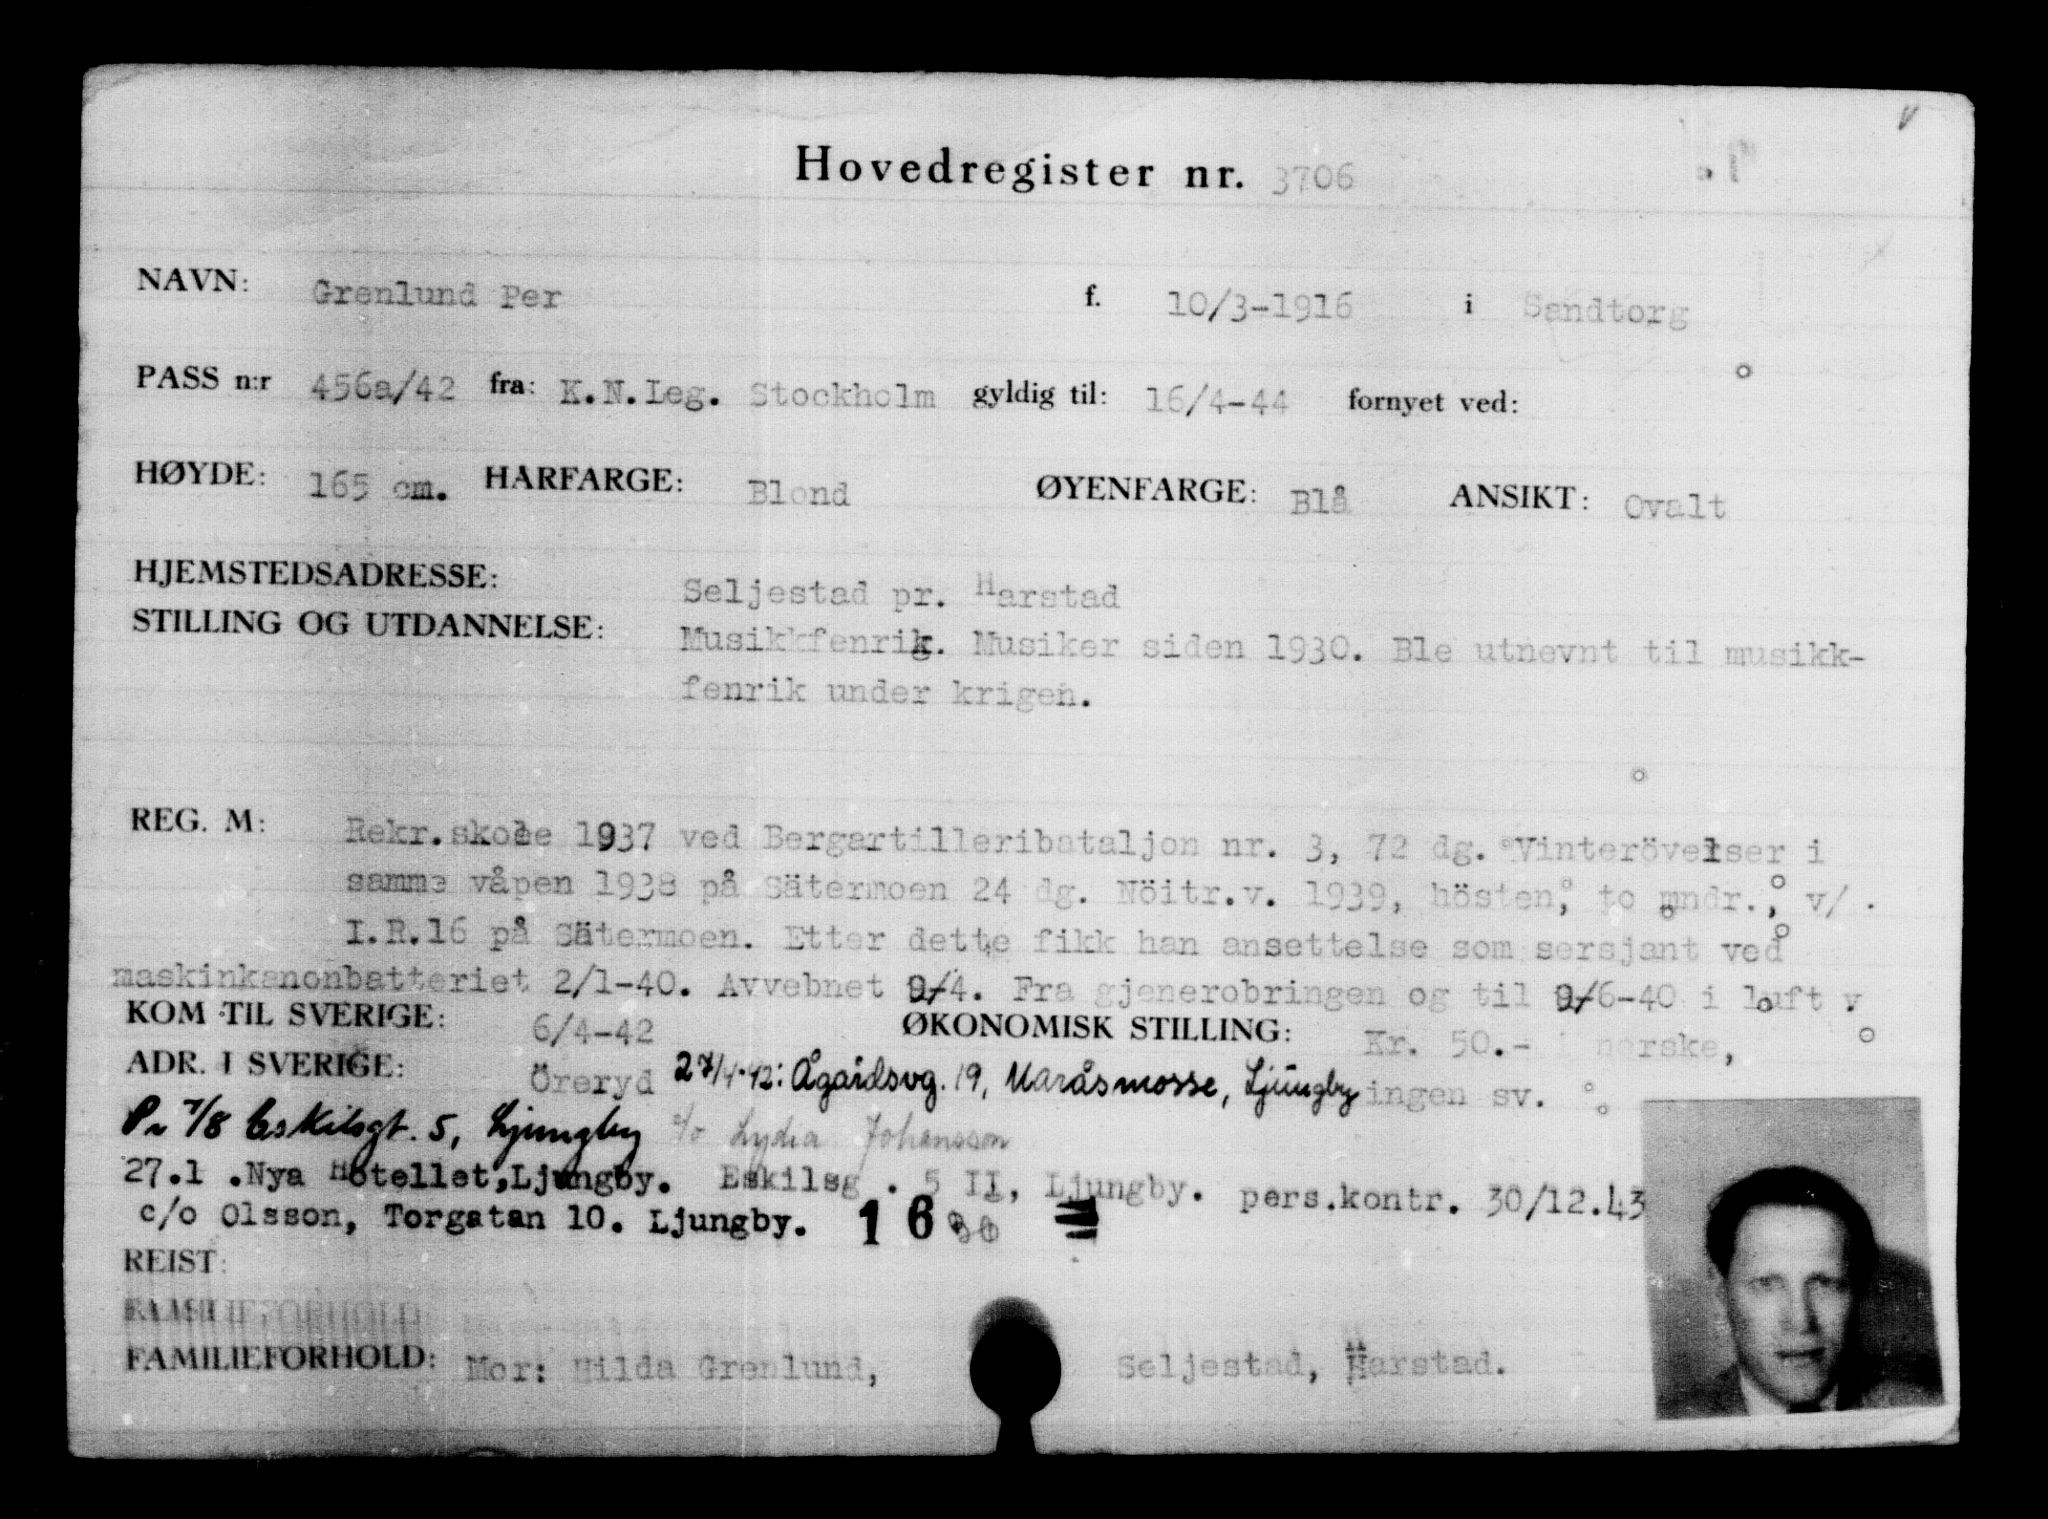 Hovedregister nr. 3706
NAVN: Grenlund Per f. 10/3-1916 i Sandtorg
PASS n:r 456a/42 fra: K.N.Leg. Stockholm gyldig til: 16/4-44 fornyet ved:
HØYDE: 165 cm. HÅRFARGE: Blond ØYENFARGE: Blå ANSIKT: Ovalt
HJEMSTEDSADRESSE: Seljestad pr. Harstad
STILLING OG UTDANNELSE: Musikkfenrik. Musiker siden 1930. Ble utnevnt til musikk-
fenrik under krigen.
REG. M: Rekr.skole 1937 ved Bergartilleribataljon nr. 3, 72 dg. Vinterövelser i
samme våpen 1938 på Sätermoen 24 dg. Nöitr.v. 1939, hösten, to mndr., v/
I.R.16 på Sätermoen. Etter dette fikk han ansettelse som sersjant ved
maskinkanonbatteriet 2/1-40. Avvebnet 9/4. Fra gjenerobringen og til 9/6-40 i luft v
KOM TIL SVERIGE: 6/4-42 ØKONOMISK STILLING: Kr. 50.- norske,
ADR. I SVERIGE: Öreryd 27/4-42: Ågårdsvg. 19, Maråsmosse, Ljungby ingen sv.
Pr 7/8 Eskilsgt. 5, Ljungby c/o Lydia Johansson
27.1 .Nya Hotellet,Ljungby. Eskilsg . 5 II, Ljungby. pers.kontr. 30/12.43
c/o Olsson, Torgatan 10. Ljungby. 16
REIST:
FAMILIEFORHOLD:
FAMILIEFORHOLD: Mor: Hilda Grenlund, Seljestad, Harstad.